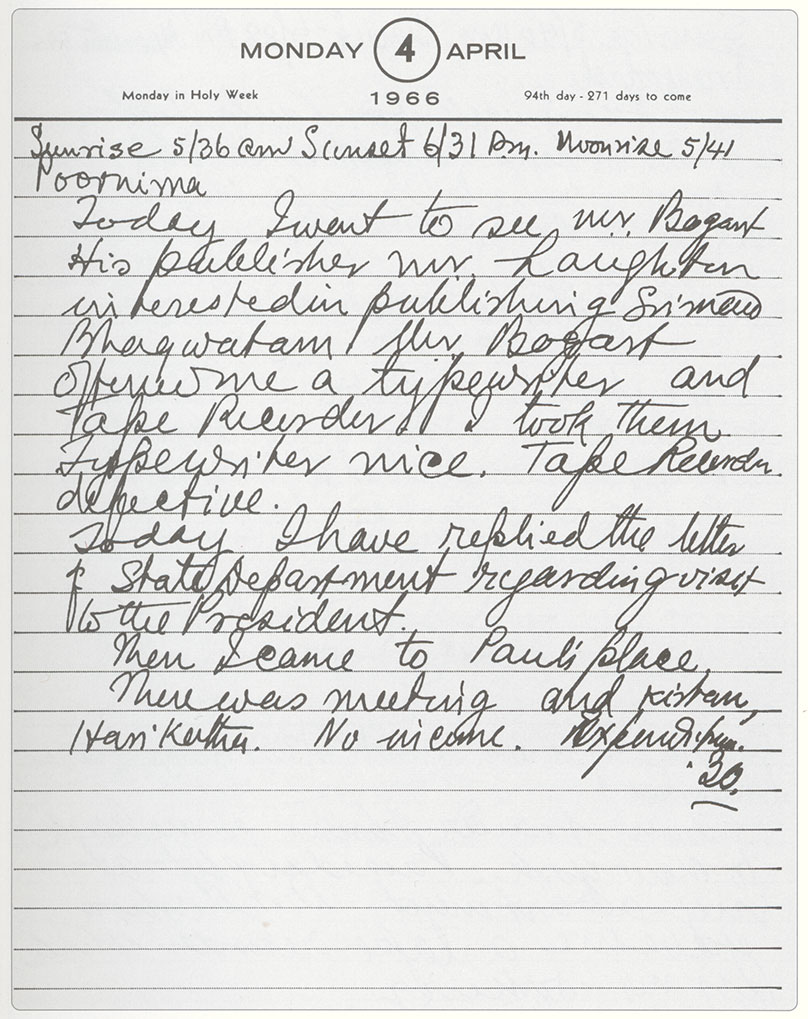 MONDAY 4 APRIL
Monday in Holy Week 1966 94th day - 271 days to come
Sunrise 5/36 am Sunset 6/31 P.m. Moonrise 5/41
Poornima
Today I went to see mr. Bogart
His publisher mr. Laughton
interested in publishing Srimad
Bhagwatam. Mr. Bogart
offered me a typewriter and
Tape Recorder. I took them
Typewriter nice. Tape Recorder
defective.
Today I have replied the letter
of State Department regarding visit
to the President.
Then I came to Paul's place.
There was meeting and kirtan,
Hari Katha. No income. Expenditure.
.20.